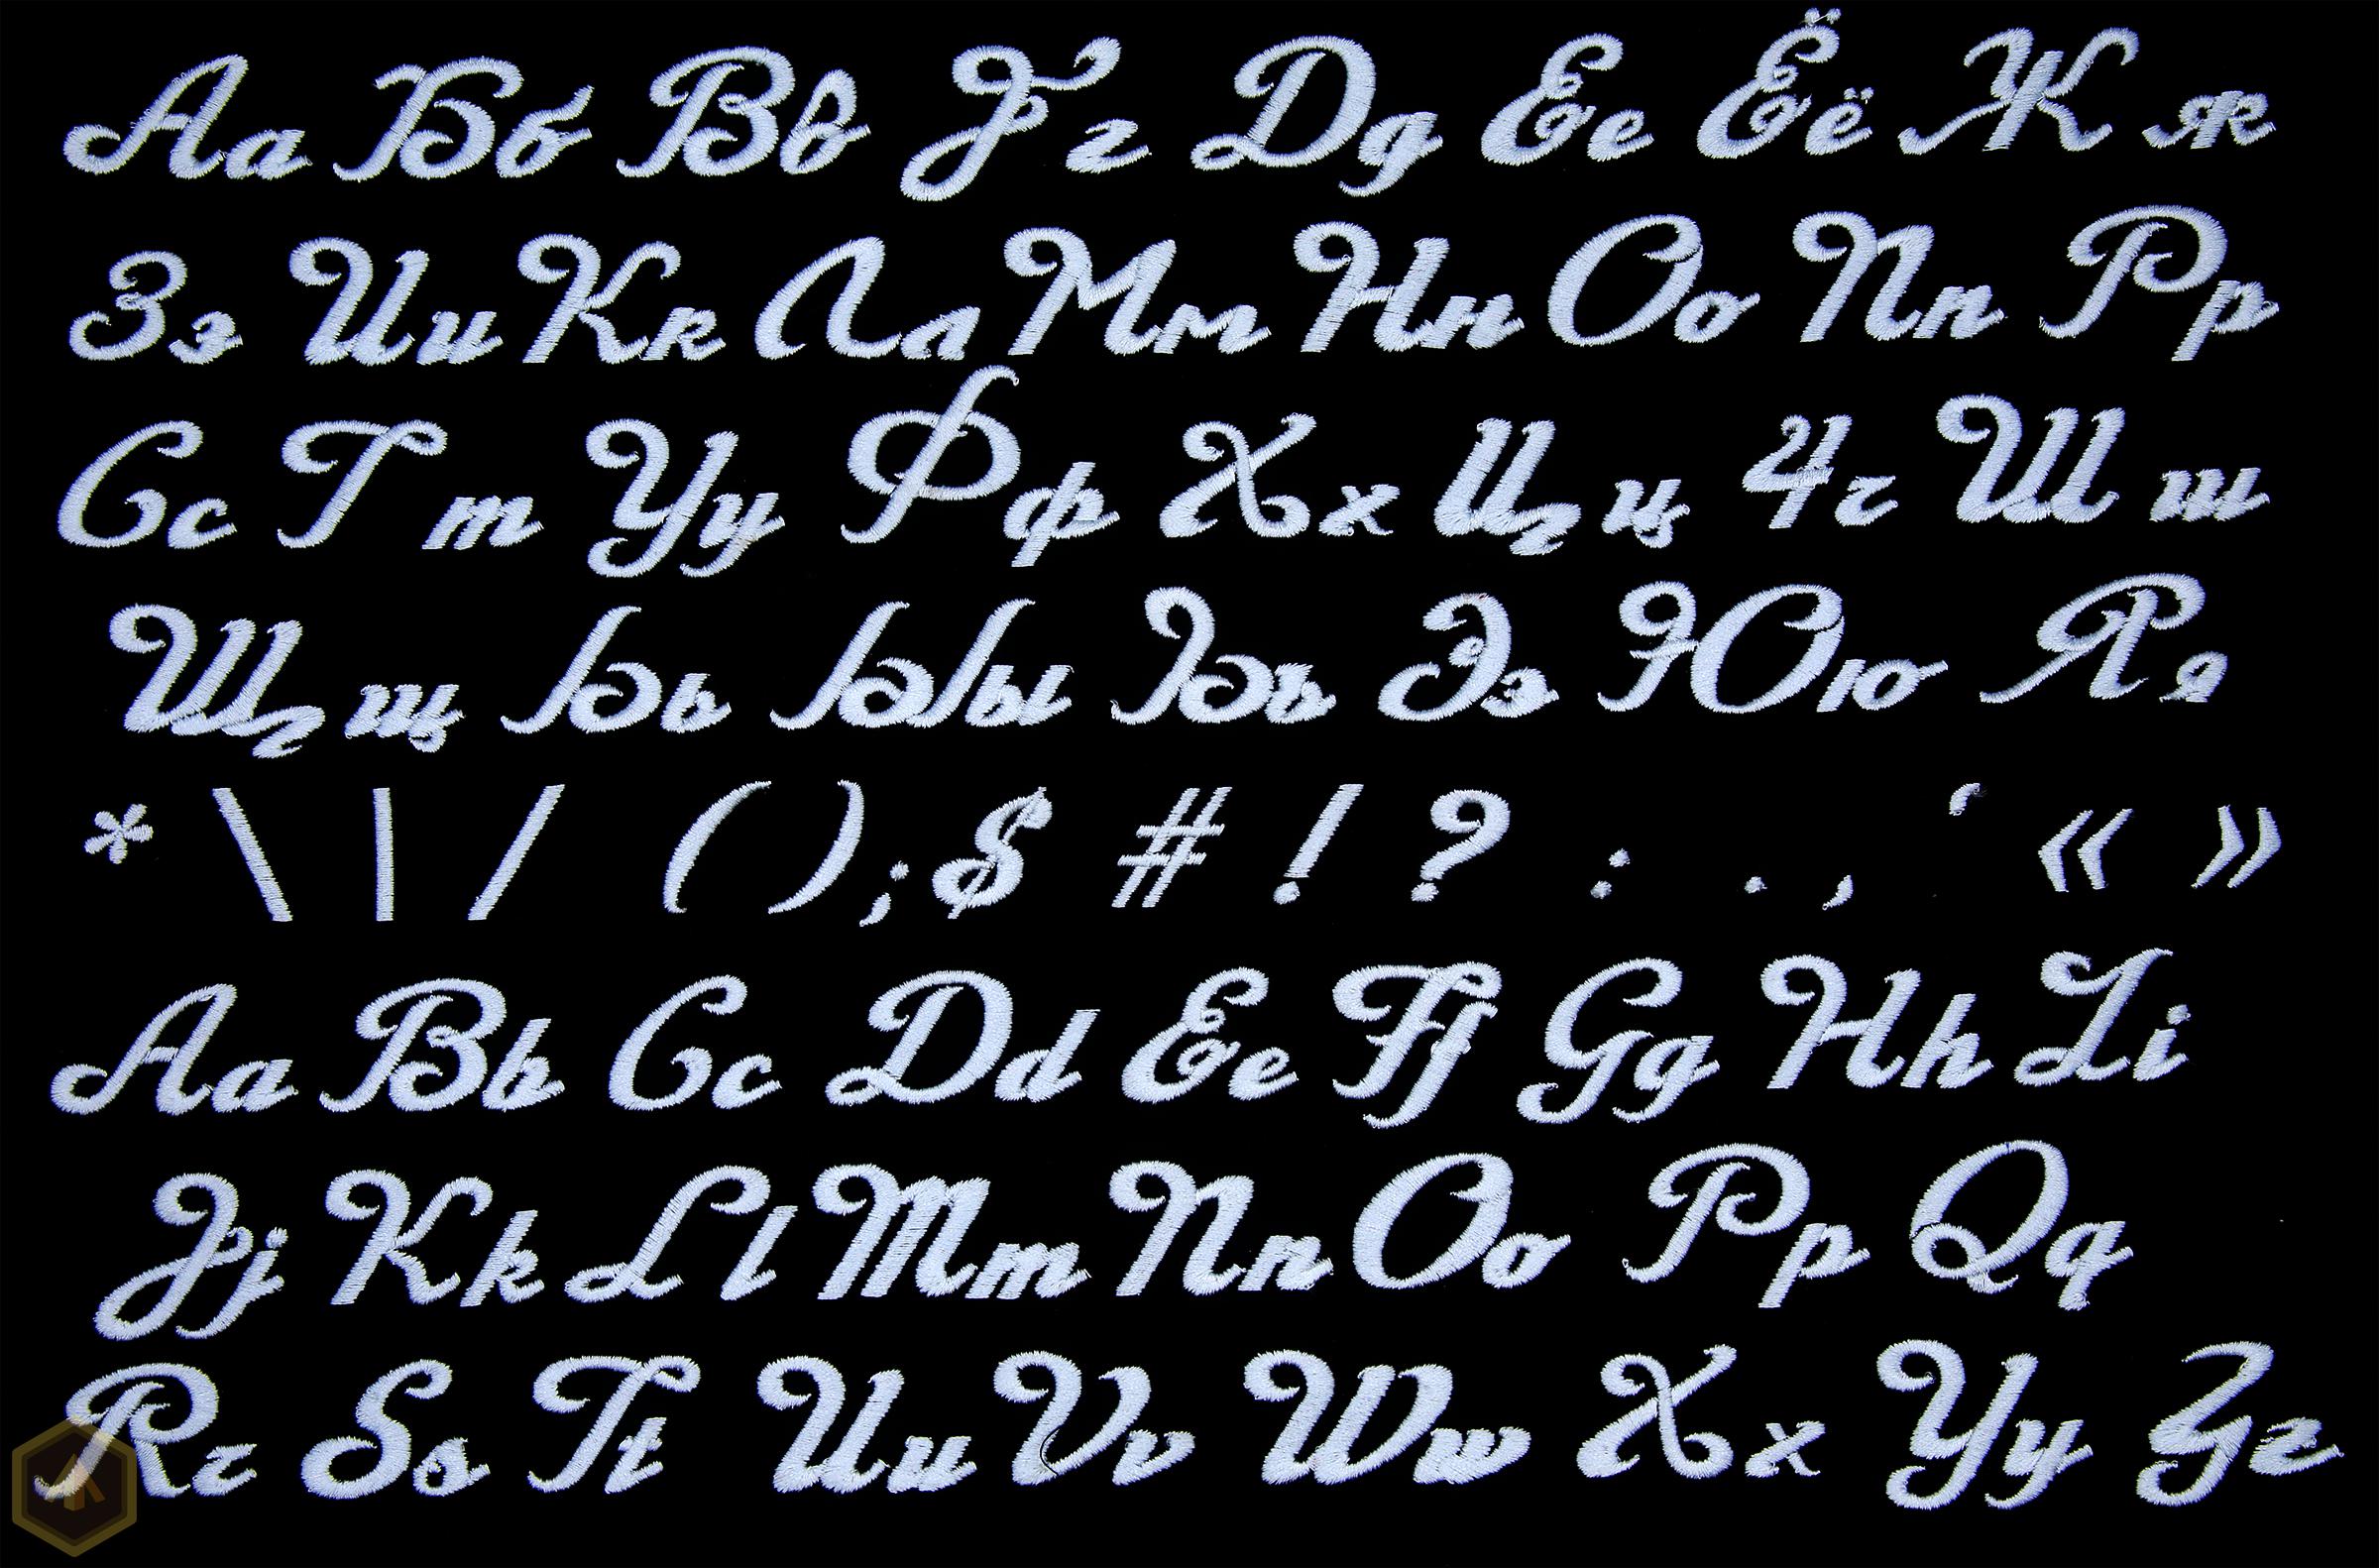 Аа Бб Вв Гг Дд Ее Ёё Жж
Зз Ии Кк Лл Мм Нн Оо Пп Рр
Сс Тт Уу Фф Хх Цц Чч Шш
Щщ Ьь Ыы Ъъ Ээ Юю Яя
* \ | / ( ) ; $ # ! ? : . , ‘ « »
Aa Bb Cc Dd Ee Ff Gg Hh Ii
Jj Kk Ll Mm Nn Oo Pp Qq
Rr Ss Tt Uu Vv Ww Xx Yy Zz